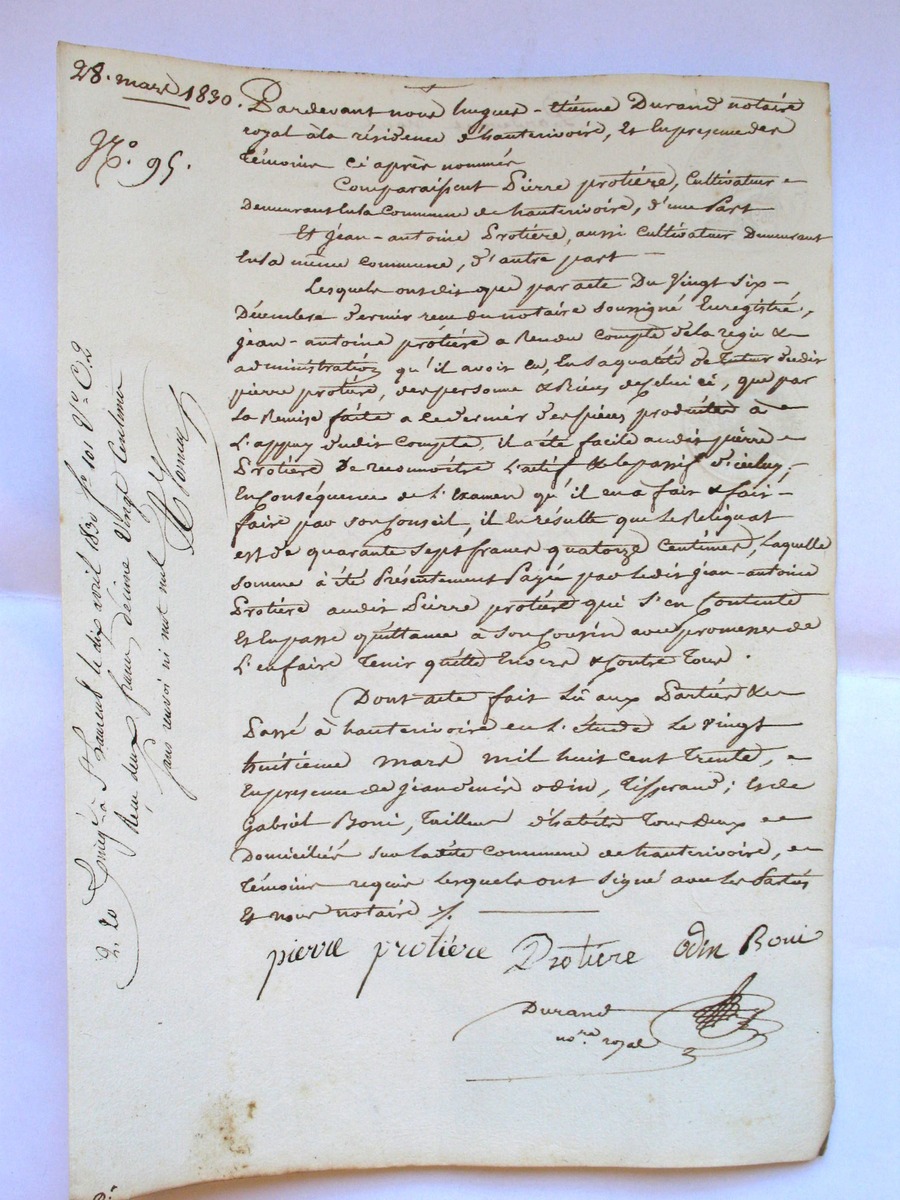 28. mars 1830.
N.° 95.
Pardevant nous hugues-étienne Durand notaire
royal à la résidence d'hauterivoire, Et En presence des
témoins ci après nommés
Comparaissent Pierre protière, Cultivateur
Demeurant En la Commune de hauterivoire, d'une Part
Et jean-antoine Protière, aussi Cultivateur Demeurant
En la même Commune, d'autre part
Lesquels ont dit que par acte Du Vingt Six
Décembre dernier recu du notaire soussigné Enregistré,
jean-antoine protière a Rendu Compte de la regie &
administration qu'il avoit eu, En sa qualité de tuteur dudit
pierre protière, des personne & Biens de Celui ci, que par
La Remise faite a ce dernier des pièces produites à
L'appuy dudit Compte, il a été facile audit pierre
Protière De reconnoître L'actif & le passif d'iceluy;
En Conséquence de L'Examen qu'il en a fait & fait
faire par son Conseil, il En résulte que Le Reliquat
est de quarante sept francs quatorze Centimes, Laquelle
somme à été Présentement Payée par Ledit jean-antoine
Protière audit Pierre protière qui s'en Contente
Et En passe quittance à son Cousin avec promesse de
L'en faire tenir quitte Envers & Contre Tous.
Dont acte fait Lû aux Parties &
Passé à hauterivoire en L'étude Le vingt
huitième mars mil huit cent trente,
En presence de jean denis odin, Tisserand; Et de
Gabriel Boni, Tailleur d'habits Tous Deux
Domiciliés sur la dite Commune de hauterivoire,
témoins requis Lesquels ont signé avec les Parties
Et nous notaire ./.
pierre protière Protière odin Boni
Durand
no.re royal
2. 20 Enreg.é à S.t Laurent le dix avril 1830 f.o 101 V.o C. 2
Reçu deux francs décime Vingt Centimes
sans renvoi ni mot nul